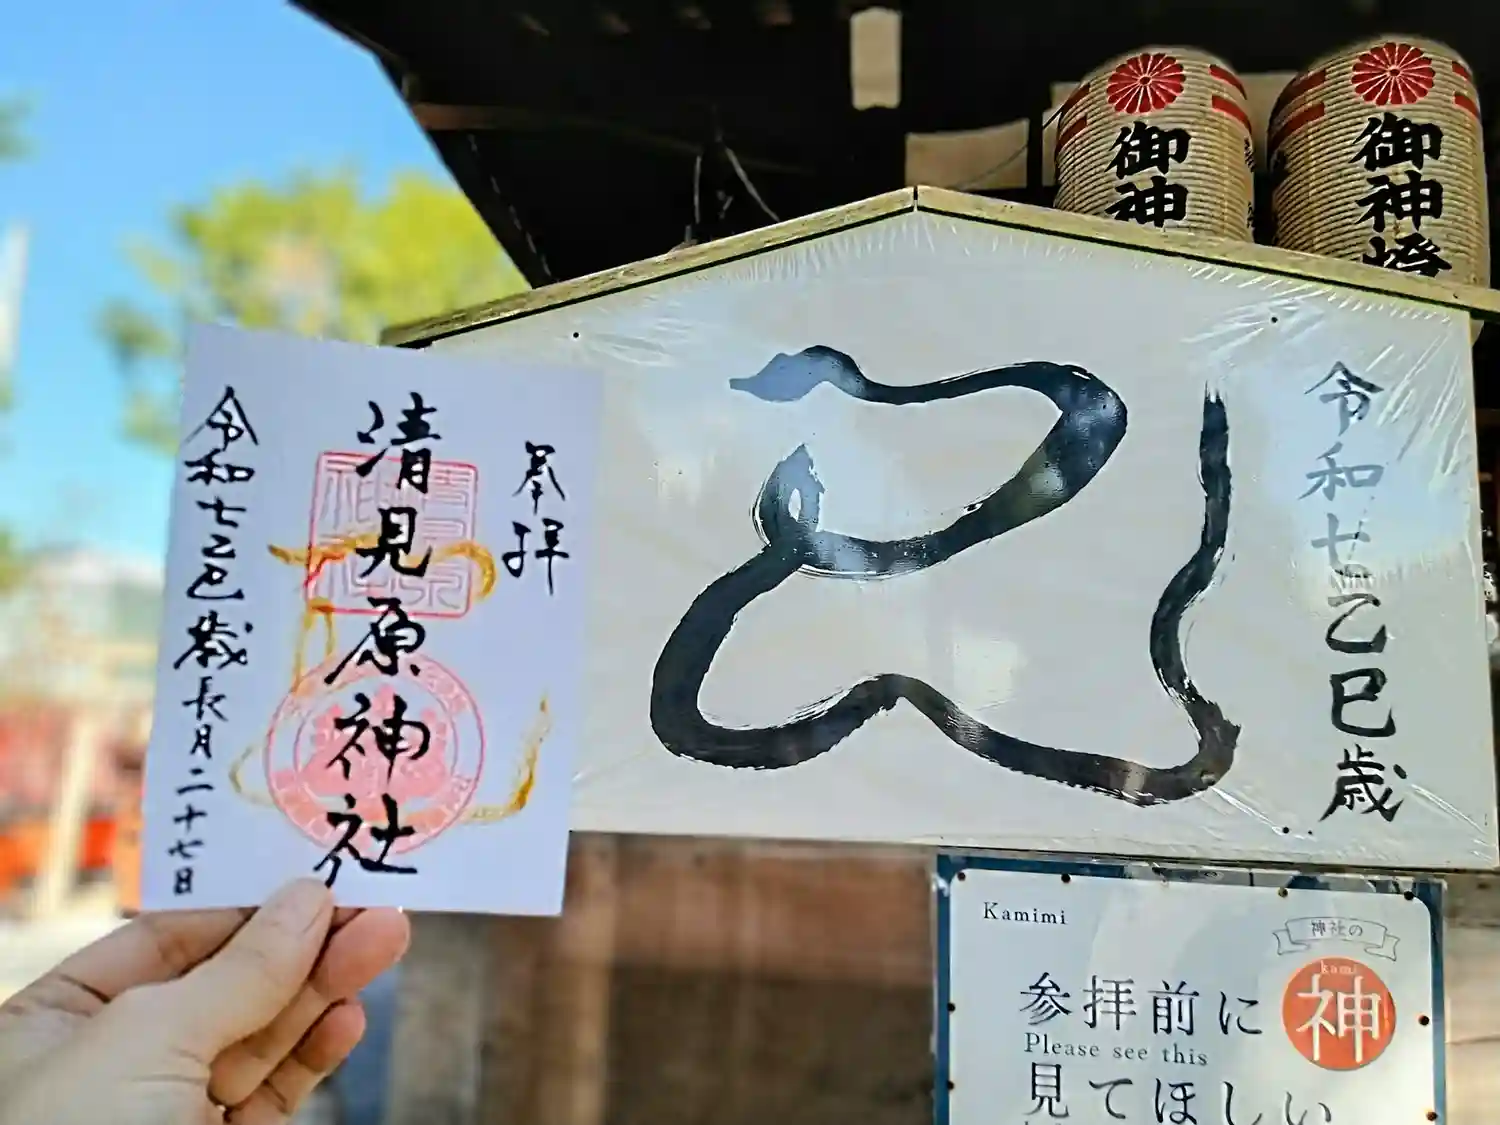 奉拝
清見原神社
令和七乙巳歳長月二十七日
御神
御神燈
巳
令和七乙巳歳
Kamimi
神社の
kami
神
参拝前に
Please see this
見てほしい